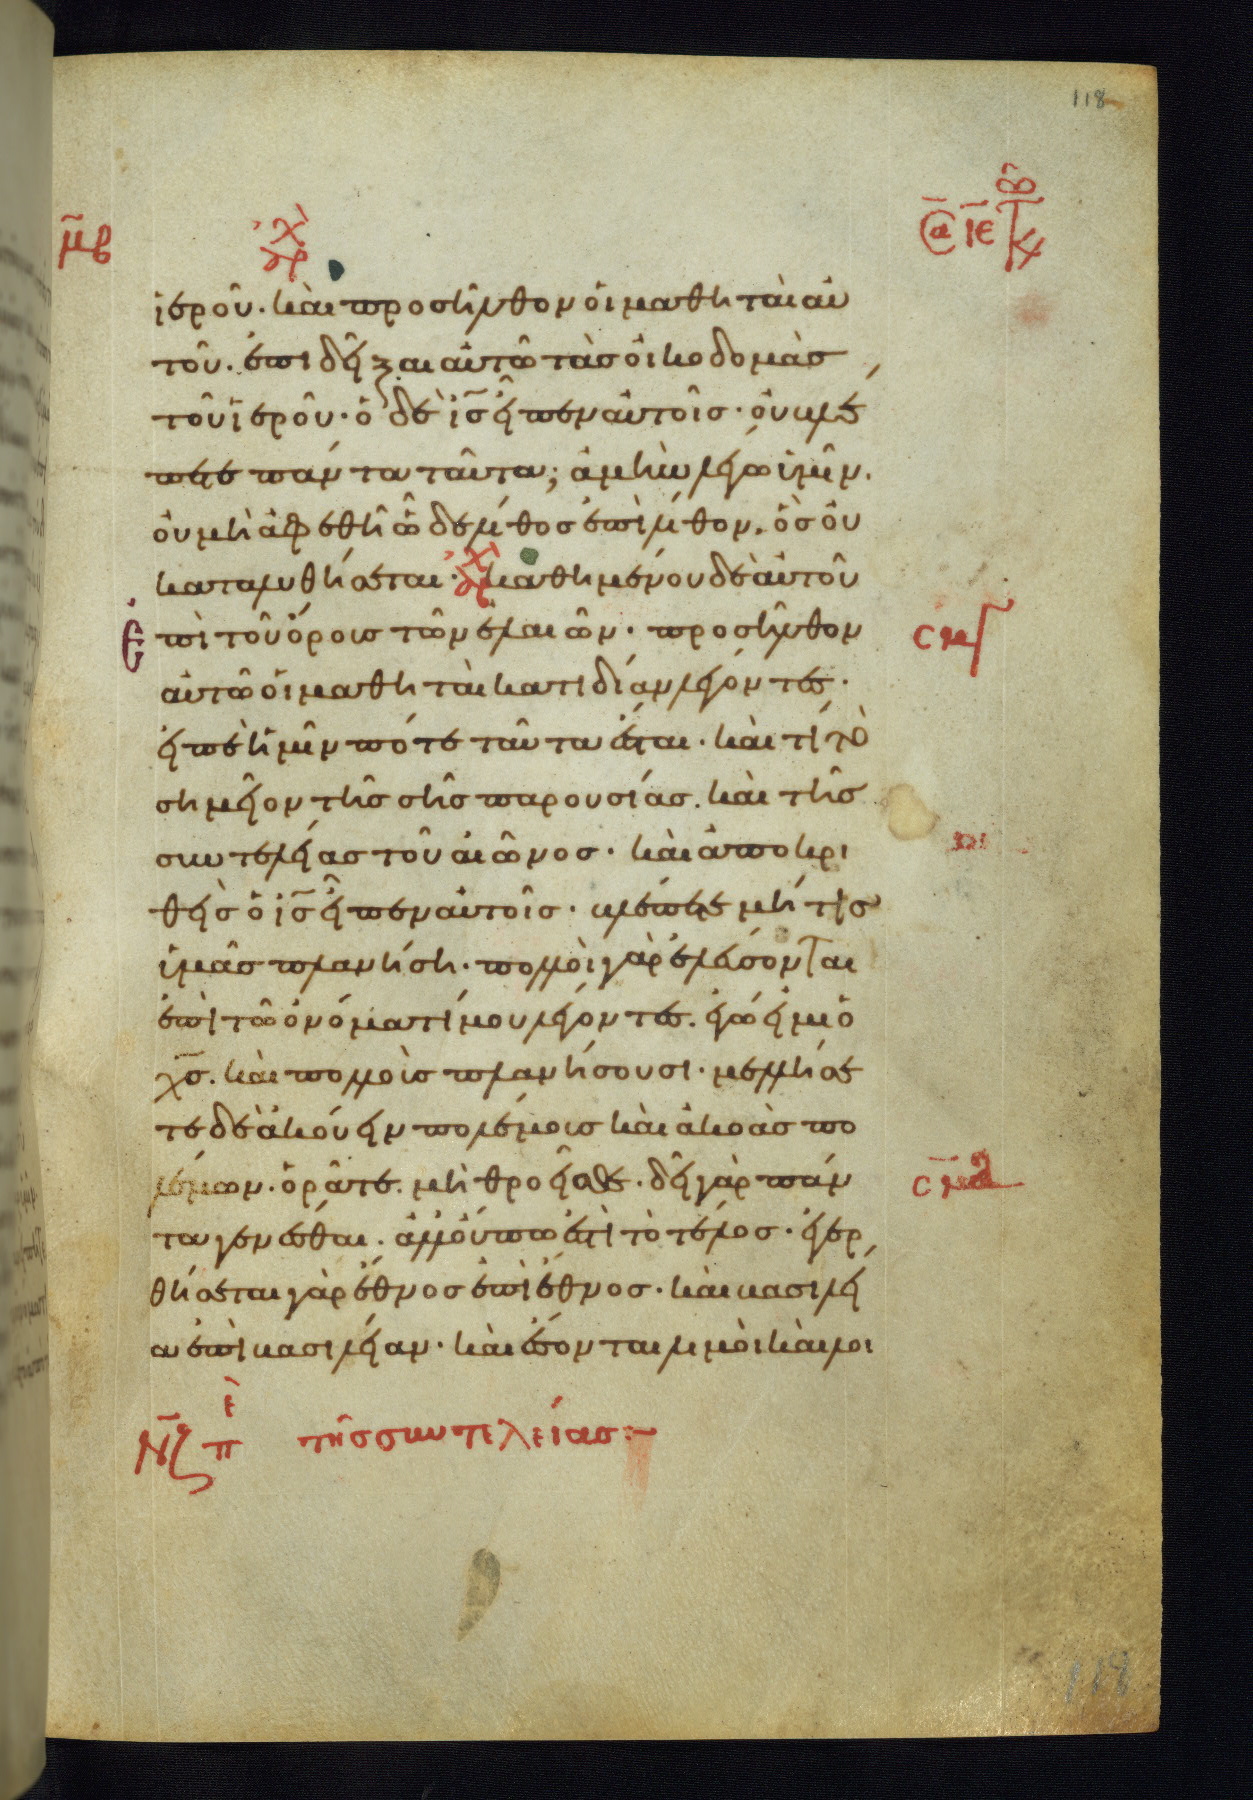 118
μβ
ἱεροῦ· καὶ προσῆλθον οἱ μαθηταὶ αὐ
τοῦ· ἐπιδεῖξαι αὐτῶ τὰσ οἰκοδομὰσ
τοῦ ἱεροῦ· ὁ δὲ ισ εἶπεν αὐτοῖσ· οὐ βλέ
πετε πάντα ταῦτα; ἀμὴν λέγω ὑμῖν·
οὐ μὴ ἀφεθῆ ὧδε λίθοσ ἐπὶ λίθον, ὃσ οὐ
καταλυθήσεται· καθημένου δὲ αὐτοῦ
ἐπὶ τοῦ ὄρουσ τῶν ἐλαιῶν· προσῆλθον
αὐτῶ οἱ μαθηταὶ κατιδίαν λέγοντες·
εἰπὲ ἡμῖν πότε ταῦτα ἔσται· καὶ τί τὸ
σημεῖον τῆσ σῆσ παρουσίασ· καὶ τῆσ
συντελείασ τοῦ αἰῶνοσ· καὶ ἀποκρι
θεὶσ ὁ ισ εἶπεν αὐτοῖσ· βλέπετε μή τισ
ὑμᾶσ πλανήση· πολλοὶ γὰρ ἐλεύσονται
ἐπὶ τῶ ὀνόματί μου λέγοντες· ἐγώ εἰμι ὁ
χσ· καὶ πολλοὺσ πλανήσουσι· μελλήσε
τε δὲ ἀκούειν πολέμουσ καὶ ἀκοὰσ πο
λέμων· ὁρᾶτε· μὴ θροεῖσθε· δεῖ γὰρ πάν
τα γενέσθαι· ἀλλ οὔπω ἐστὶ τὸ τέλοσ· ἐγερ
θήσεται γὰρ ἔθνοσ ἐπὶ ἔθνοσ· καὶ βασιλεί
α ἐπὶ βασιλείαν· καὶ ἔσονται λιμοὶ καὶ λοι
τῆσ συντελείασ: